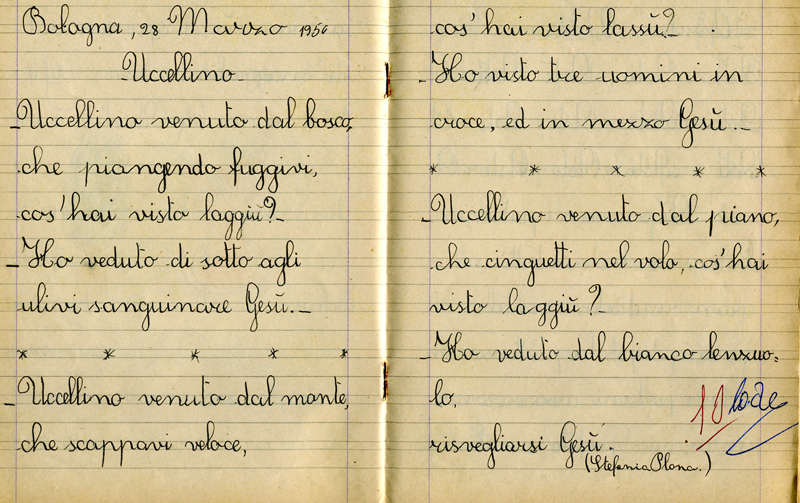 Bologna, 28 Marzo 1956
Uccellino
-Uccellino venuto dal bosco,
che piangendo fuggivi,
cos'hai visto laggiù?-
-Ho veduto di sotto agli
ulivi sanguinare Gesù.-
* * * * *
-Uccellino venuto dal monte,
che scappavi veloce,
cos'hai visto lassù?-
-Ho visto tre uomini in
croce, ed in mezzo Gesù.-
* * * * *
-Uccellino venuto dal piano,
che cinguetti nel volo, cos'hai
visto laggiù?-
-Ho veduto dal bianco lenzuo=
lo,
risvegliarsi Gesù.
(Stefania Plona.)
10 lode